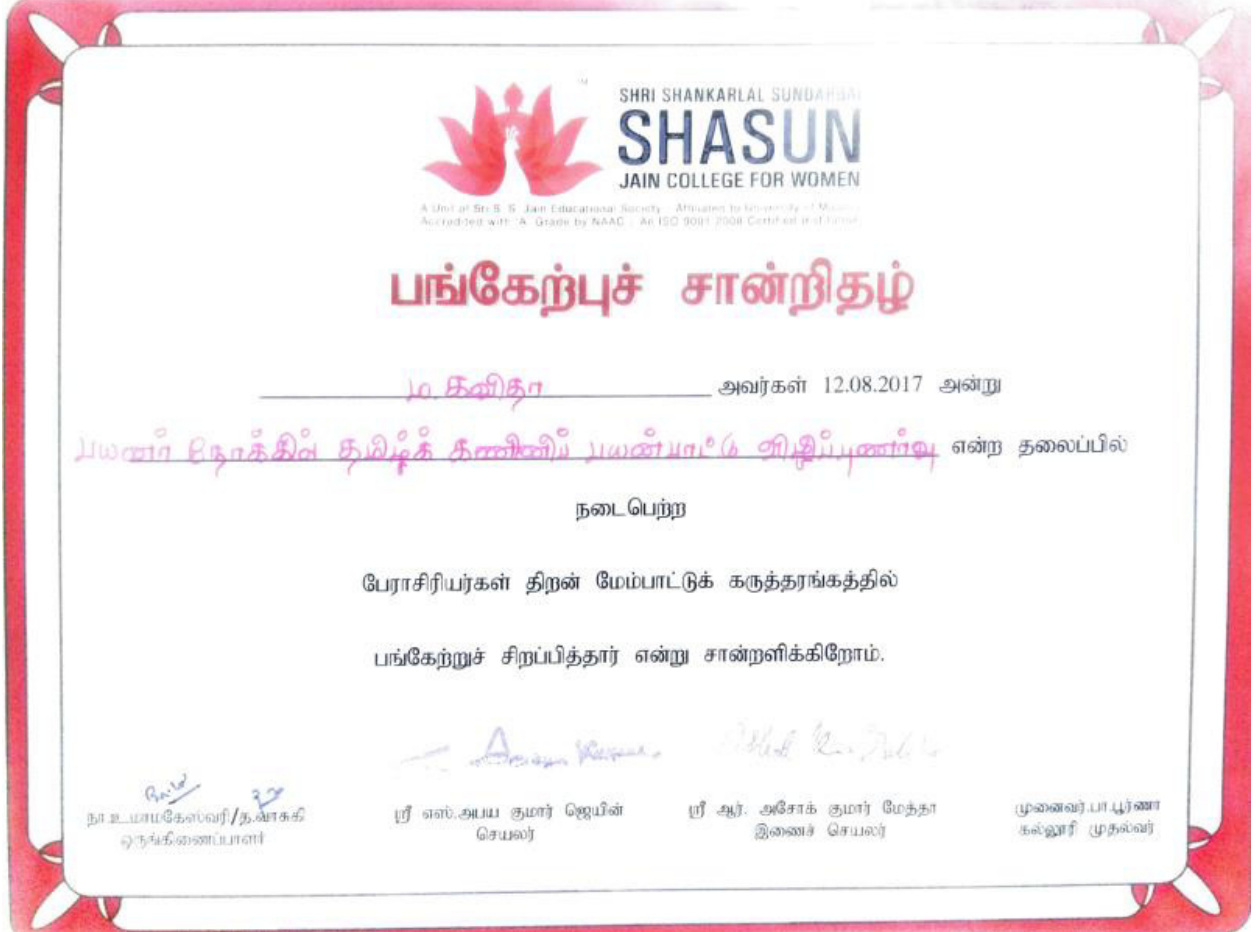 SHRI SHANKARLAL SUNDARBAI
SHASUN
JAIN COLLEGE FOR WOMEN
A Unit of Sri S. S. Jain Educational Society Affiliated to University of Madras
Accredited with 'A' Grade by NAAC An ISO 9001:2008 Certified
பங்கேற்புச் சான்றிதழ்
ம. கவிதா அவர்கள் 12.08.2017 அன்று
பயனர் நோக்கில் தமிழ்க் கணினிப் பயன்பாட்டு விழிப்புணர்வு என்ற தலைப்பில்
நடைபெற்ற
பேராசிரியர்கள் திறன் மேம்பாட்டுக் கருத்தரங்கத்தில்
பங்கேற்றுச் சிறப்பித்தார் என்று சான்றளிக்கிறோம்.
நா.உமாமகேஸ்வரி/த.வாசுகி
ஒருங்கிணைப்பாளர்
ஸ்ரீ எஸ்.அபய குமார் ஜெயின்
செயலர்
ஸ்ரீ ஆர். அசோக் குமார் மேத்தா
இணைச் செயலர்
முனைவர்.பா.பூர்ணா
கல்லூரி முதல்வர்